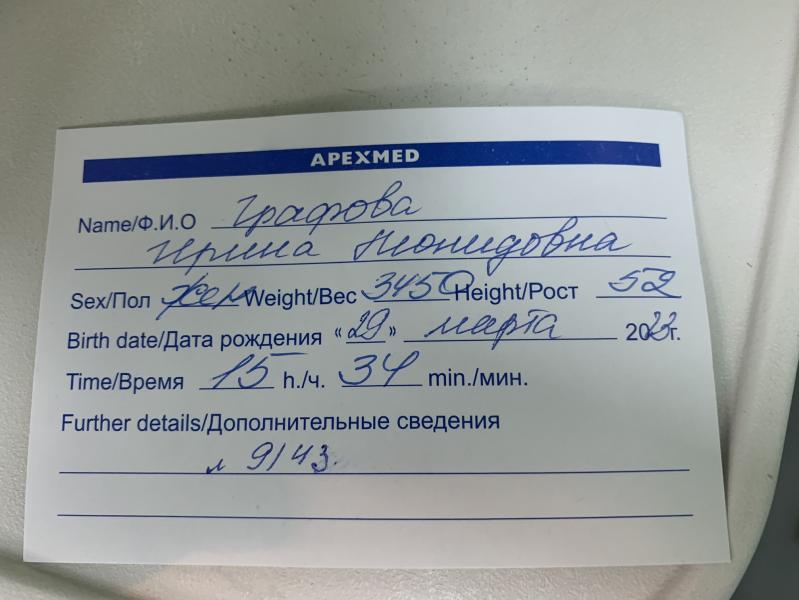 APEXMED
Name/Ф.И.О Графова
Ирина Леонидовна
Sex/Пол жен Weight/Вес 3450 Height/Рост 52
Birth date/Дата рождения «29» марта 2023г.
Time/Время 15 h./ч. 34 min./мин.
Further details/Дополнительные сведения
л 9143.